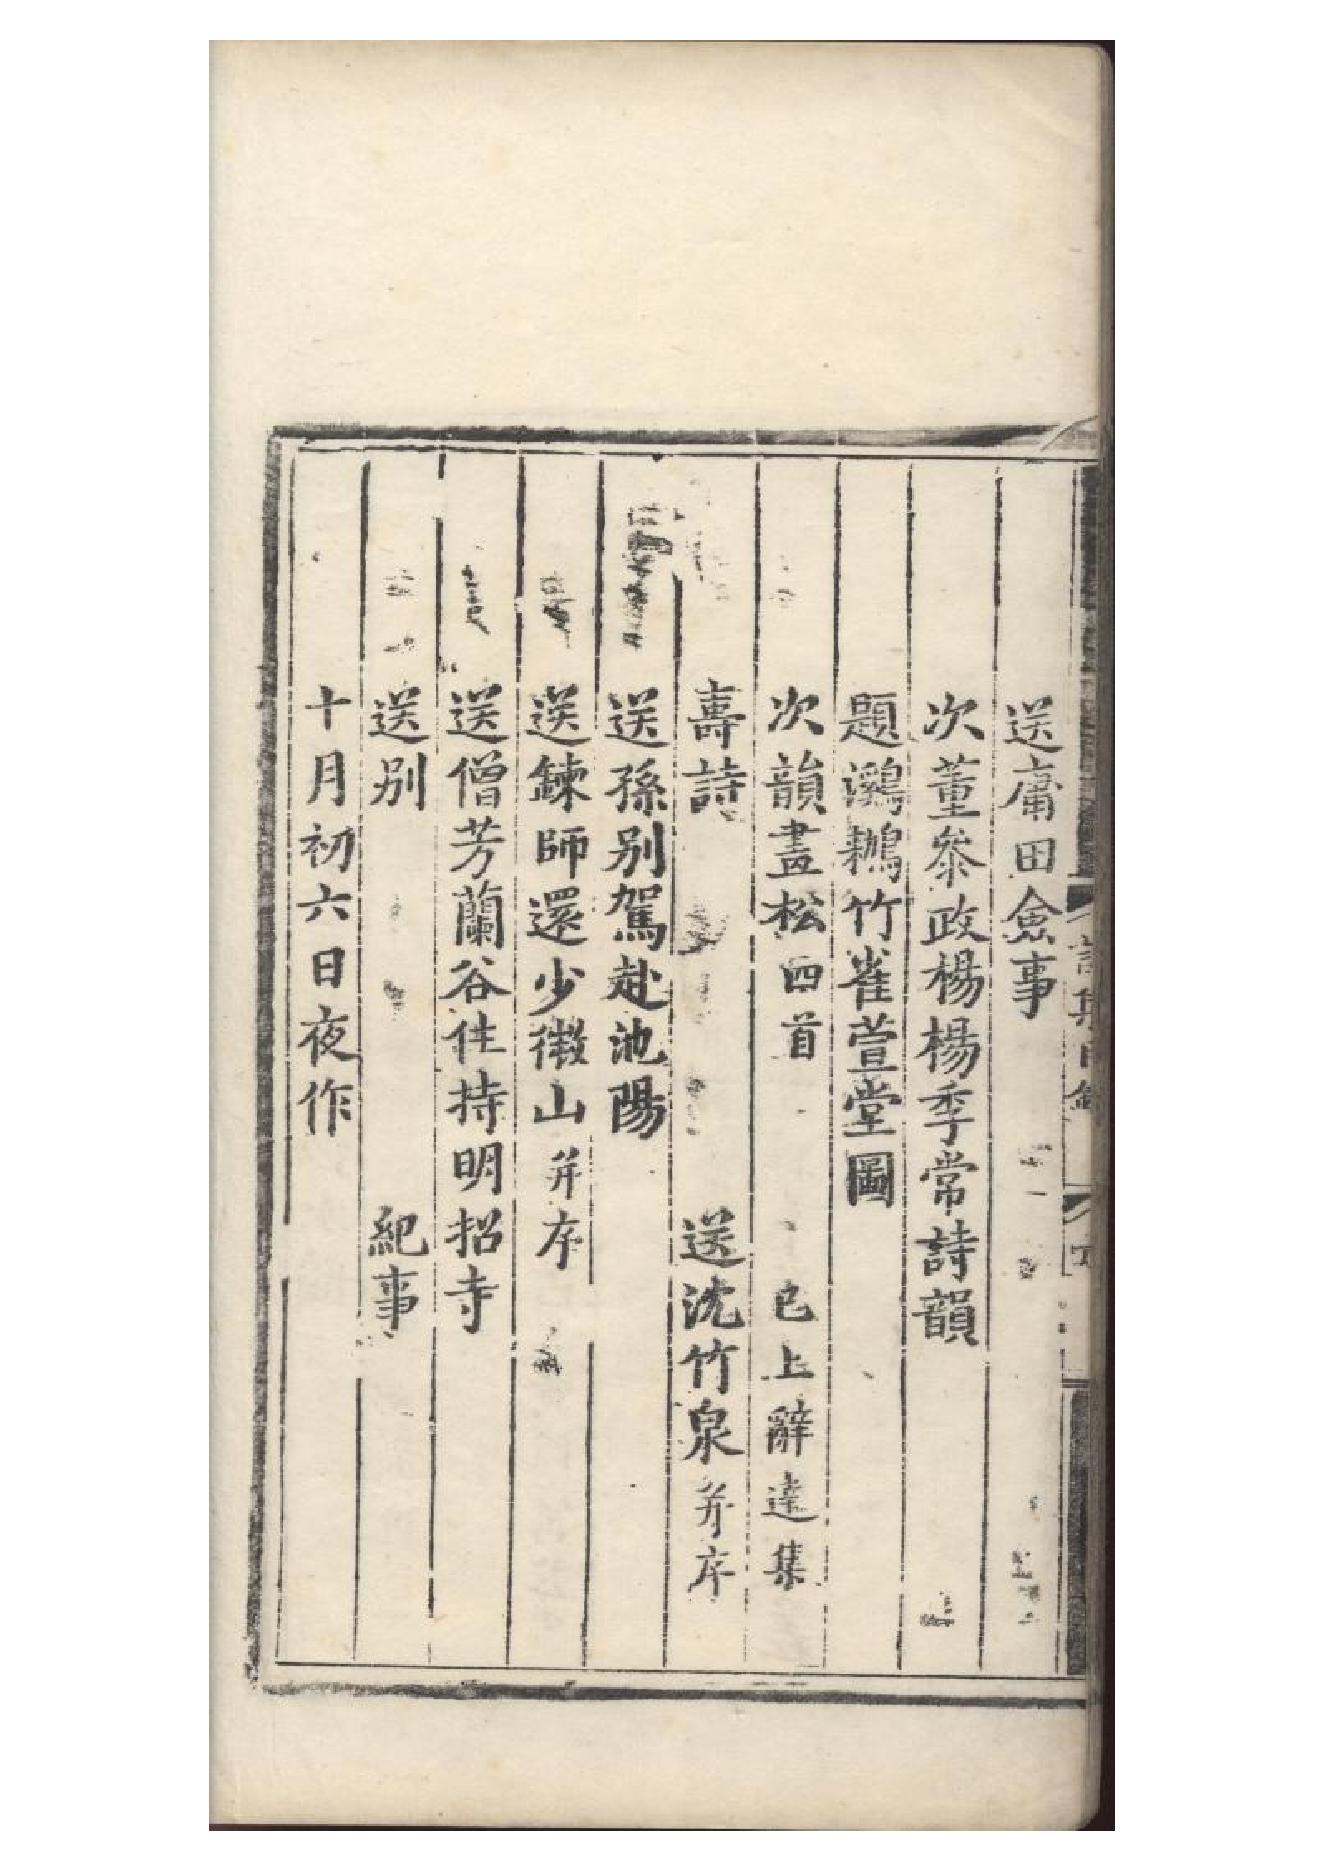 送庸田僉事
次董參政楊楊季常詩韻
題鸂𪆟竹雀萱堂圖
次韻畫松四首　已上辭達集
壽詩　送沈竹泉并序
送孫别駕赴池陽
送鍊師還少微山并序
送僧芳蘭谷住持明招寺
送别　紀事
十月初六日夜作